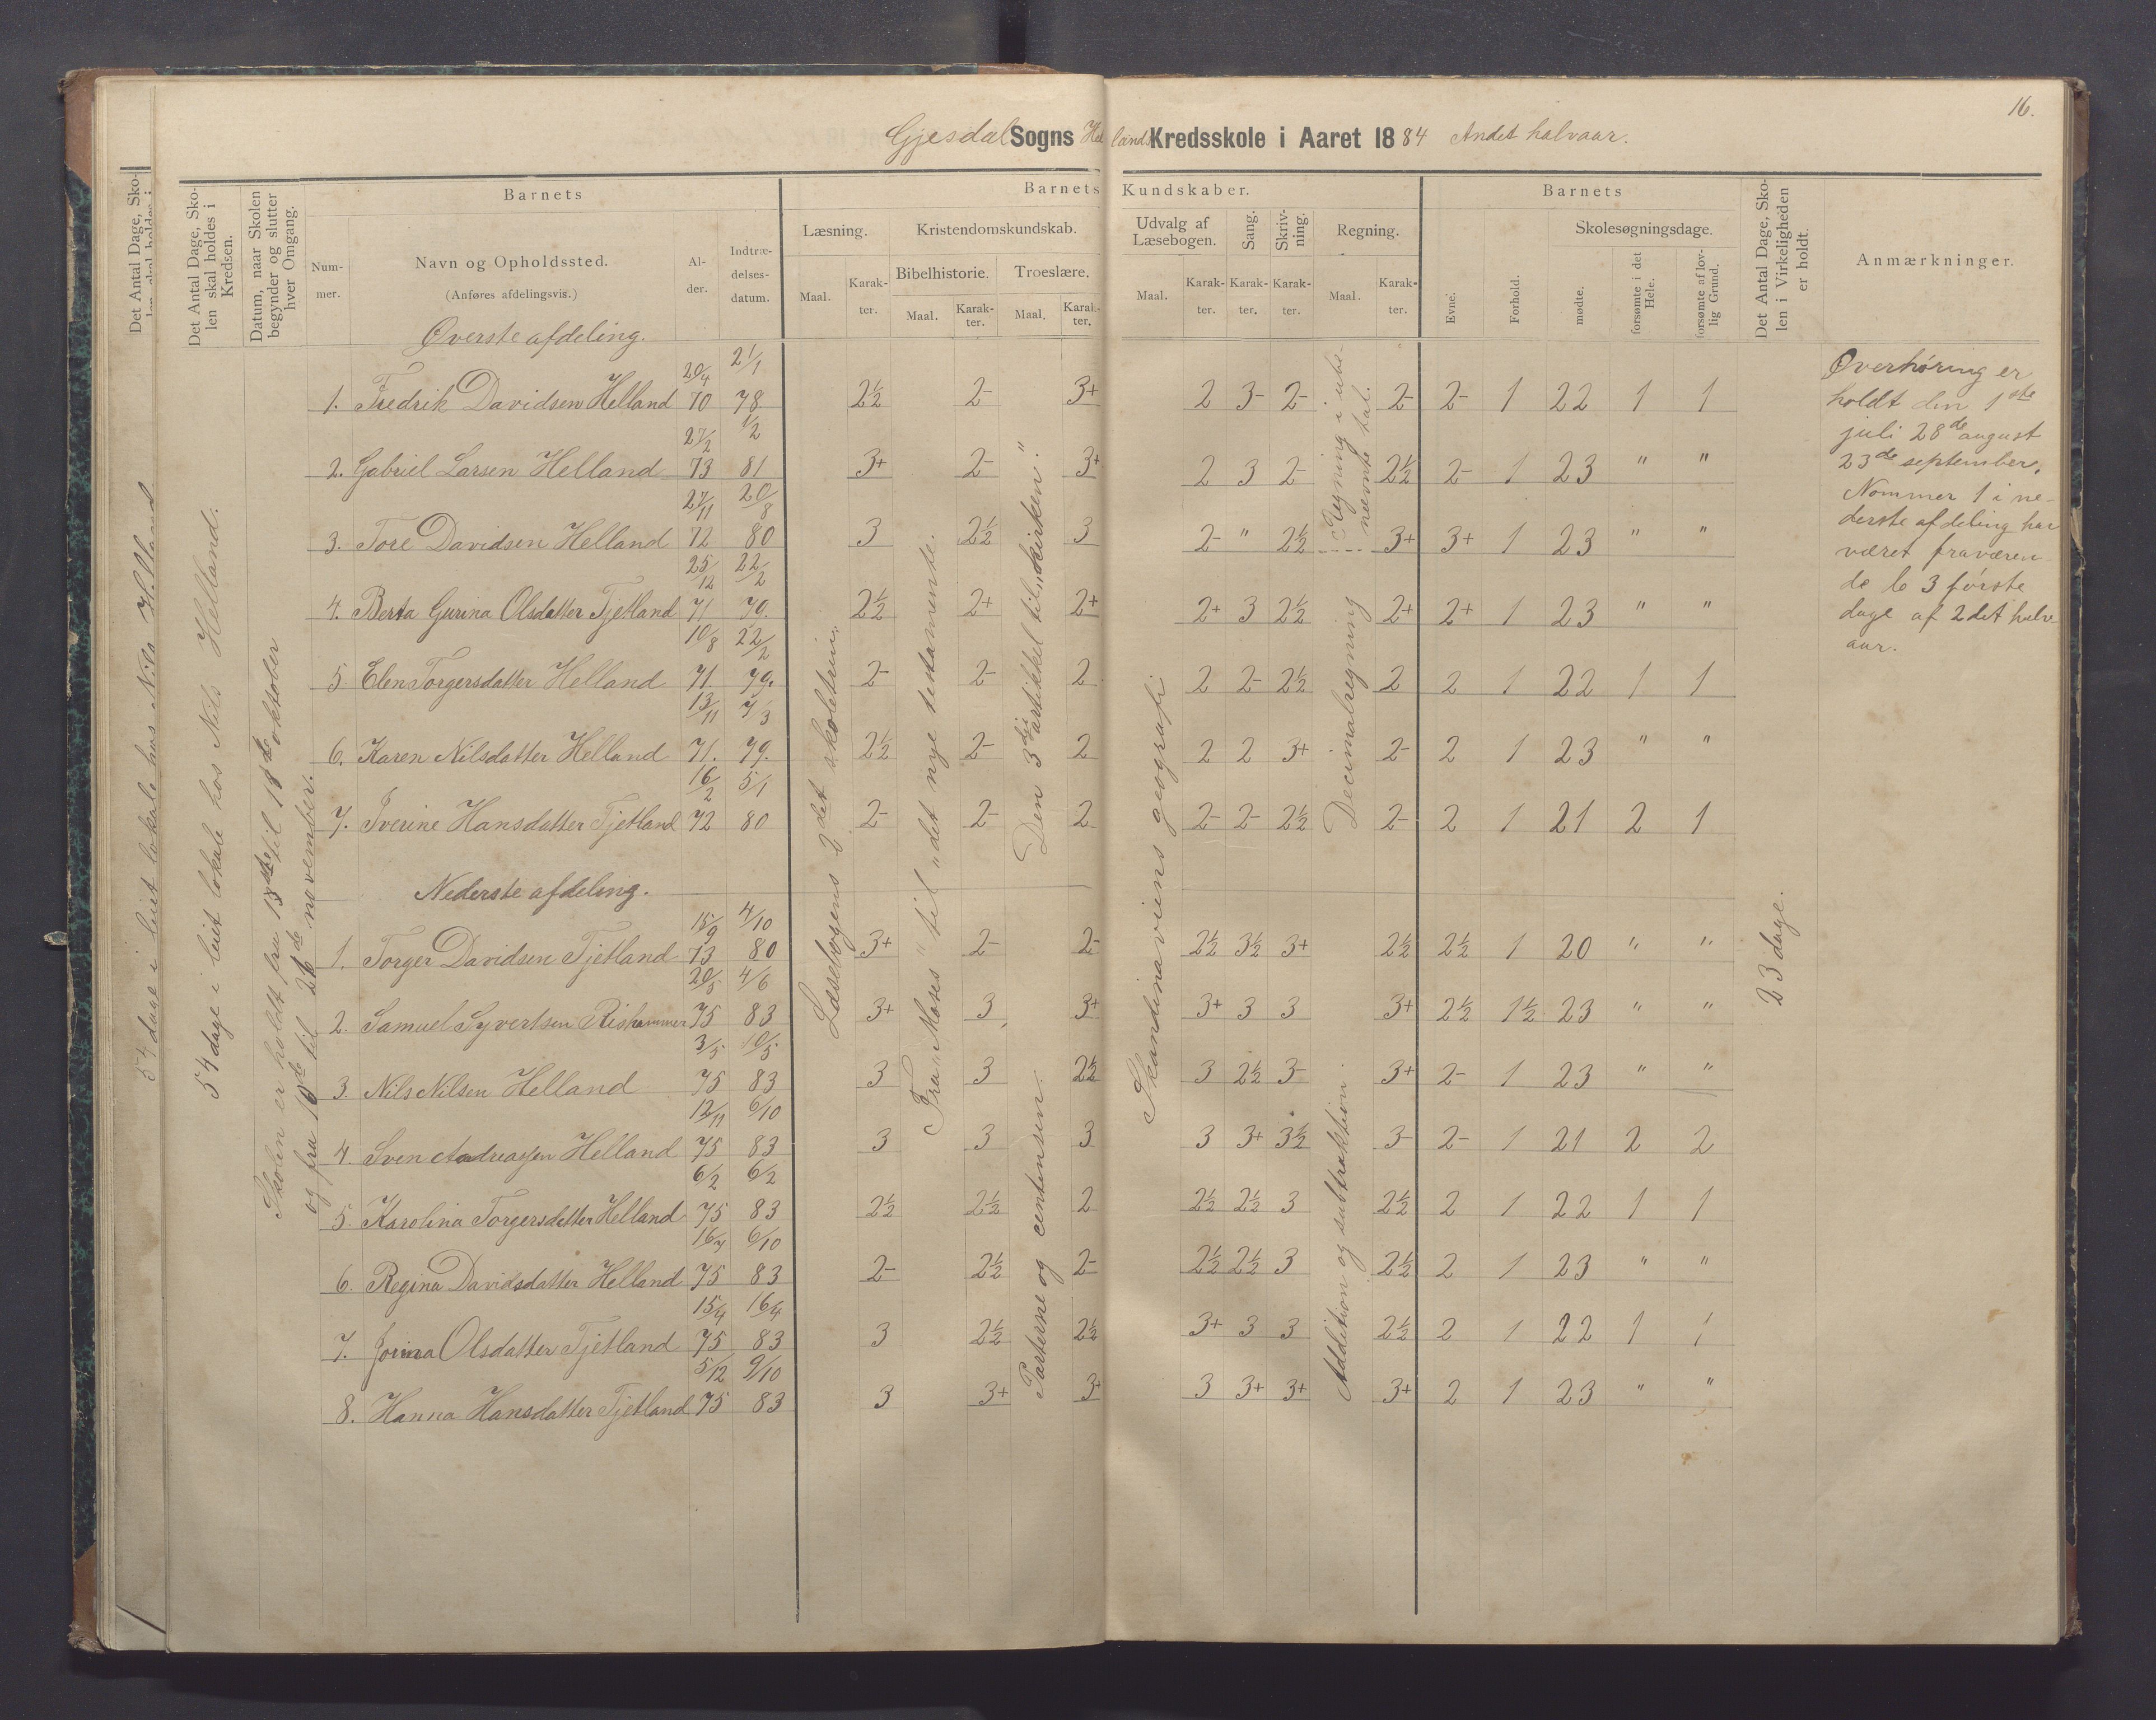 16.
Gjesdal Sogns Hellands Kredsskole i Aaret 1884 Andet halvaar.
Det Antal Dage, Sko-
Det Antal Dage, Sko-
len skal holdes i
Kredsen.
Datum, naar Skolen
begynder og slutter
hver Omgang.
Barnets
Num-
mer.
Navn og Opholdssted.
(Anføres afdelingsvis.)
Al-
der.
Indtræ-
delses-
datum.
Barnets Kundskaber.
Læsning.
Maal.
Karak-
ter.
Kristendomskundskab.
Bibelhistorie.
Maal.
Karak-
ter.
Troeslære.
Maal.
Karak-
ter.
Udvalg af
Læsebogen.
Maal.
Karak-
ter.
Sang.
Karak-
ter.
Skriv-
ning.
Karak-
ter.
Regning.
Maal.
Karak-
ter.
Barnets
Evne.
Forhold.
Skolesøgningsdage.
mødte.
forsømte i det
Hele.
forsømte af lov-
lig Grund.
Det Antal Dage, Sko-
len i Virkeligheden
er holdt.
Anmærkninger.
54 dage i leiet lokale hos Nils Helland
54 dage i leiet lokale hos Nils Helland.
Skolen er holdt fra 13de til 18de oktober
og fra 10de til 26de november.
Øverste afdeling.
1. Fredrik Davidsen Helland 20/4 70 21/1 78 2½ 2- 3+ 2 3- 2- 2- 2- 1 22 1 1
2. Gabriel Larsen Helland 27/2 73 1/2 81 3+ 2- 3+ 2 3 2- 2½ 2- 1 23 " "
3. Tore Davidsen Helland 27/11 72 20/8 80 3 2½ 3 2- " 2½ 3+ 3+ 1 23 " "
4. Berta Gurina Olsdatter Tjetland 25/12 71 22/2 79. 2½ 2+ 2+ 2+ 3 2½ 2+ 2+ 1 23 " "
5. Elen Torgersdatter Helland 10/8 71 22/2 79. 2- 2- 2 2 2- 2½ 2 2 1 22 1 1
6. Karen Nilsdatter Helland 13/11 71. 7/3 79. 2½ 2- 2 2 2 3+ 2- 2 1 23 " "
7. Iverine Hansdatter Tjetland 16/2 72 5/1 80 2- 2- 2 2- 2- 2½ 2- 2 1 21 2 1
Nederste afdeling.
1. Torger Davidsen Tjetland 15/9 73 4/10 80 3+ 2- 2- 2½ 3½ 3+ 2½ 2½ 1 20 " "
2. Samuel Syvertsen Rishammer 20/5 75 4/6 83 3+ 3 3+ 3+ 3 3 3+ 2½ 1½ 23 " "
3. Nils Nilsen Helland 3/5 75 10/5 83 3 3 2½ 3 2½ 3- 3+ 2- 1 23 " "
4. Sven Andreassen Helland 12/11 75 6/10 83 3 3 3 3 3+ 3½ 3- 2- 1 21 2 2
5. Karolina Torgersdatter Helland 6/2 75 6/2 83 2½ 2½ 2 2½ 2½ 3 2½ 2 1 22 1 1
6. Regina Davidsdatter Helland 16/7 75 6/10 83 2- 2½ 2- 2½ 2½ 3 2½ 2 1 23 " "
7. Jorina Olsdatter Tjetland 15/4 75 16/4 83 3 2½ 2½ 3+ 3 3 2½ 2 1 22 1 1
8. Hanna Hansdatter Tjetland 5/12 75 9/10 83 3 3+ 3+ 3 3+ 3+ 3+ 2 1 23 " "
Læsebogens 2det skoletrin.
Fra "Moses" til "det nye testamente.
Den 3die artikkel til "kirken".
Parterne og
Skandinaviens geografi
Regning i ube-
nævnte tal.
Decimalregning
Addition og subtraktion.
23 dage.
Overhøring er
holdt den 1ste
juli 28de august
23de september.
Nommer 1 i ne-
derste afdeling har
været fraværen-
de 3 første
dage af 2det halv-
aar.